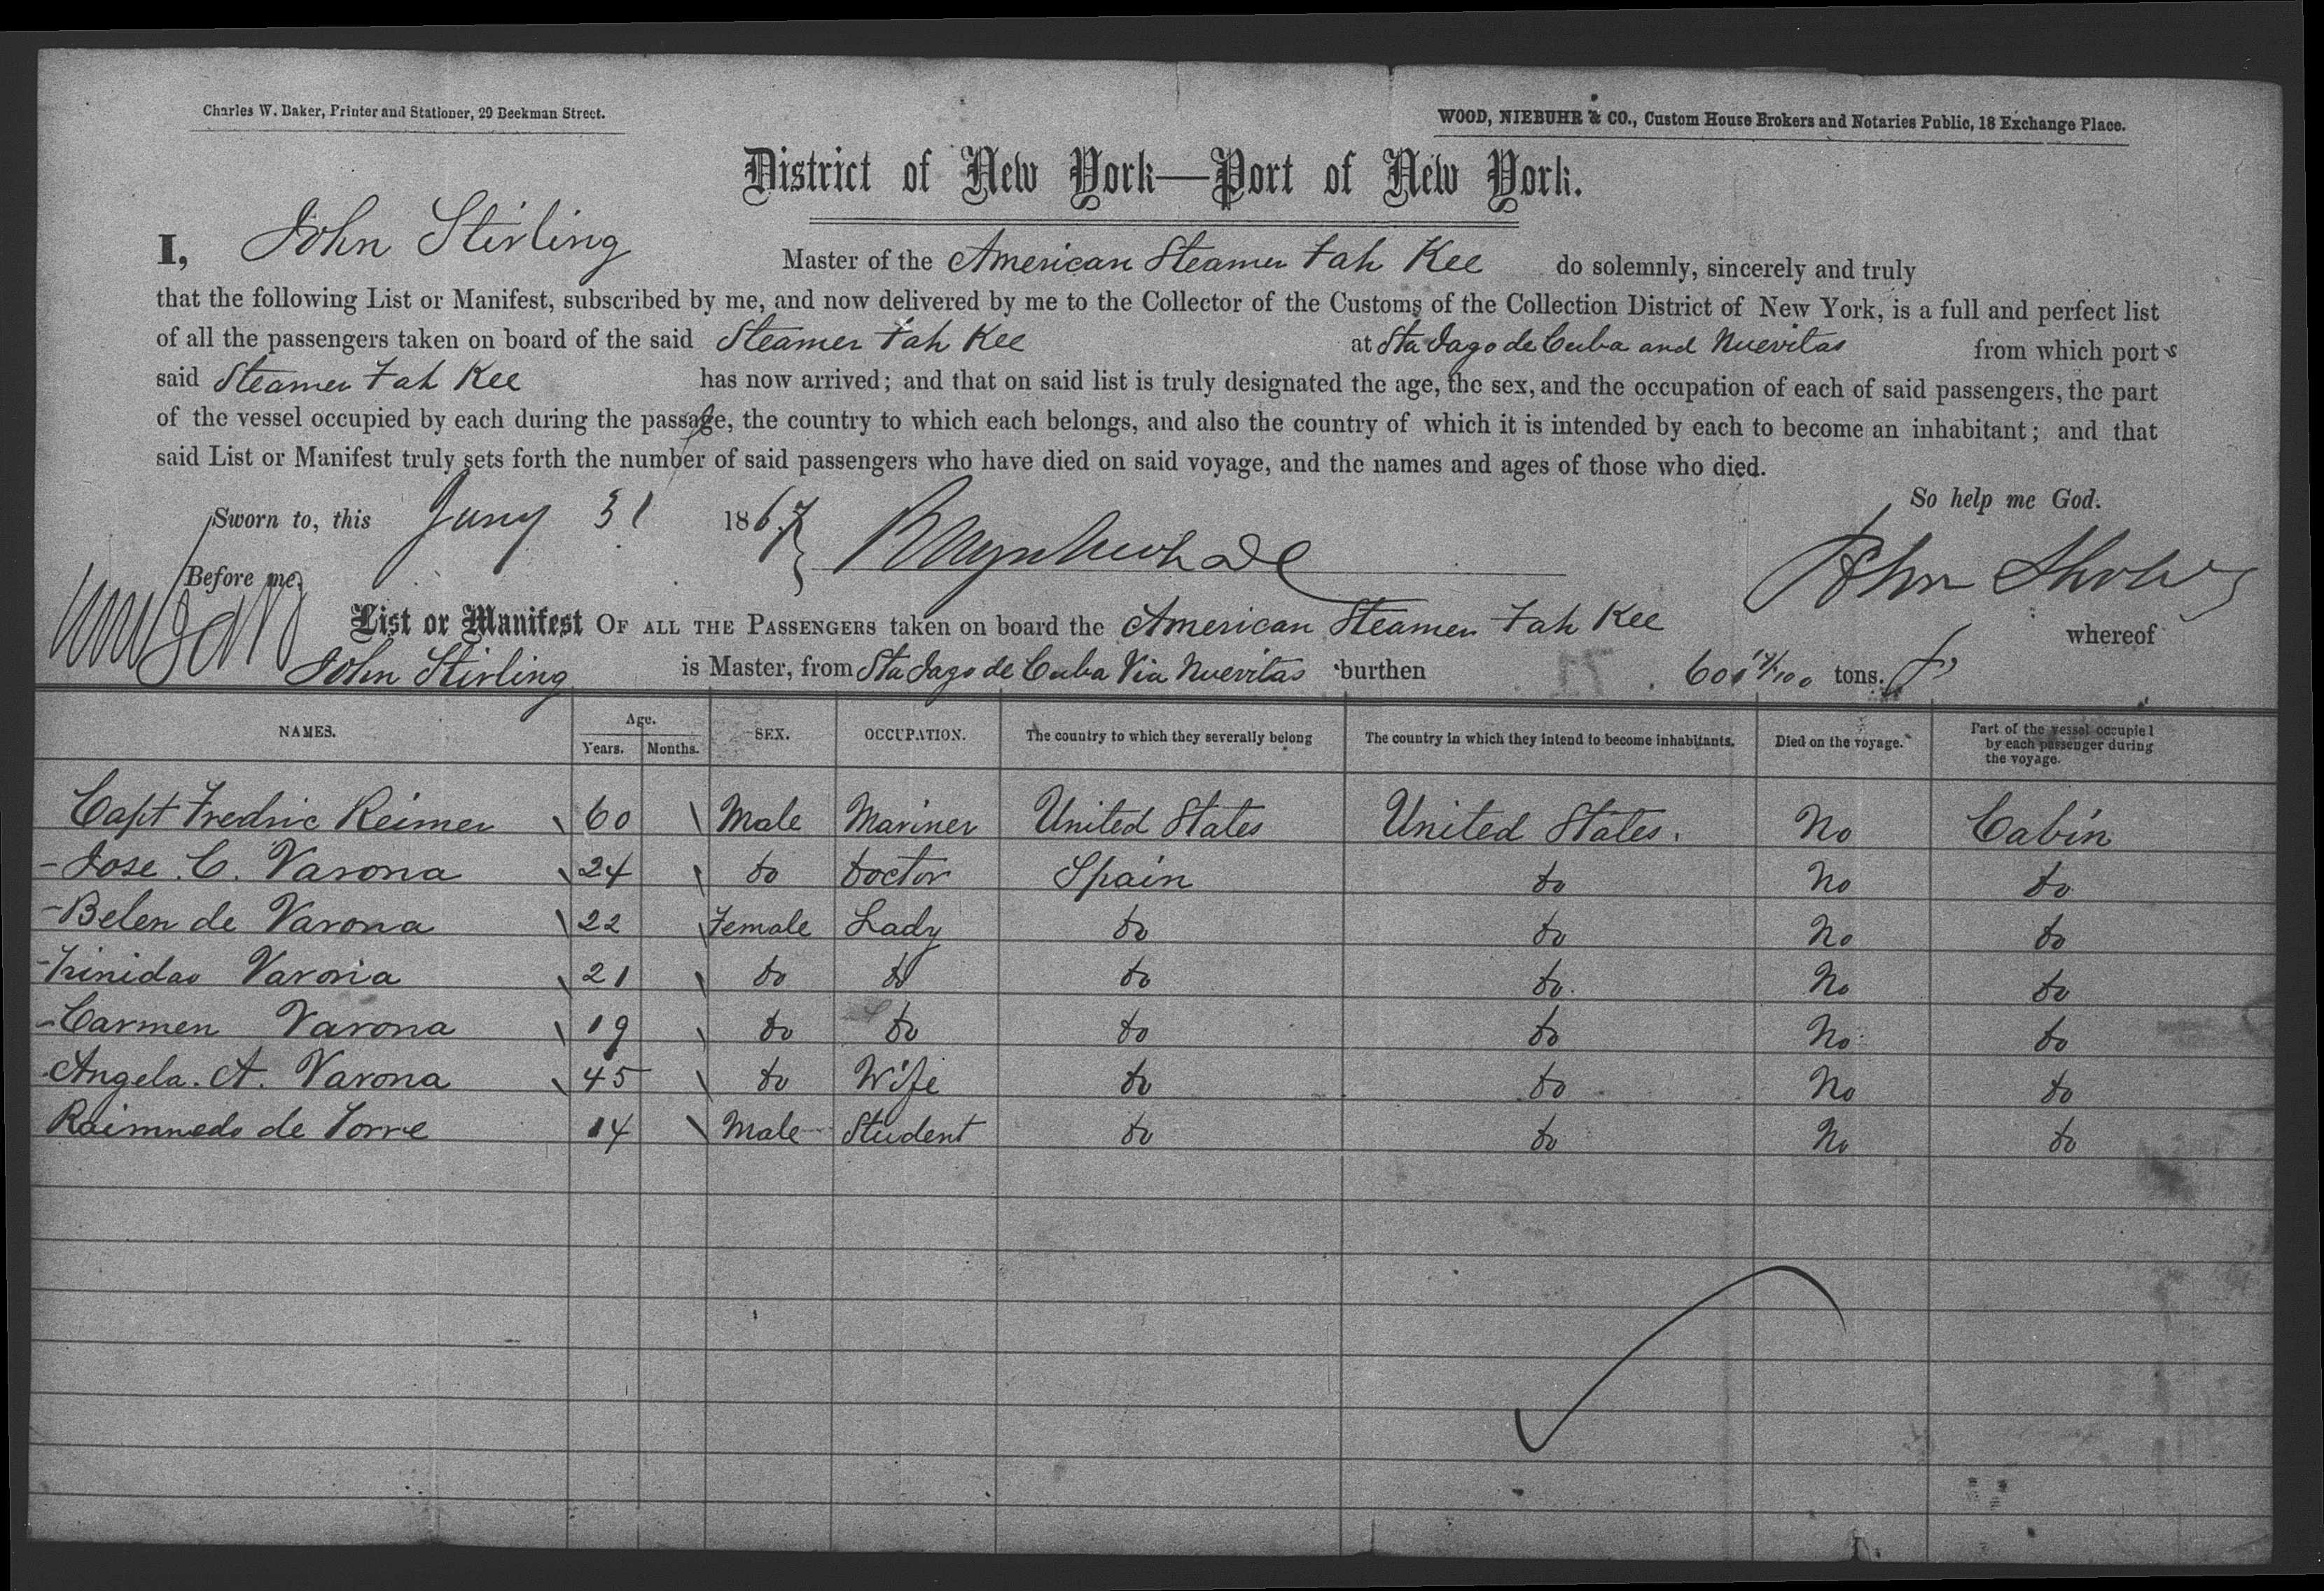 Charles W. Baker, Printer and Stationer, 29 Beekman Street.
WOOD, NIEBUHR & CO., Custom House Brokers and Notaries Public, 18 Exchange Place.
District of New York—Port of New York.
I, John Stirling Master of the American Steamer Fah Kee do solemnly, sincerely and truly
that the following List or Manifest, subscribed by me, and now delivered by me to the Collector of the Customs of the Collection District of New York, is a full and perfect list
of all the passengers taken on board of the said Steamer Fah Kee at Sta Jago de Cuba and Nuevitas from which port s
said Steamer Fah Kee has now arrived; and that on said list is truly designated the age, the sex, and the occupation of each of said passengers, the part
of the vessel occupied by each during the passage, the country to which each belongs, and also the country of which it is intended by each to become an inhabitant; and that
said List or Manifest truly sets forth the number of said passengers who have died on said voyage, and the names and ages of those who died.
So help me God.
Sworn to, this Jany 31 1867
John Stirling
Before me,
List or Manifest OF ALL THE PASSENGERS taken on board the American Steamer Fah Kee whereof
John Stirling is Master, from Sta Jago de Cuba Via Nuevitas burthen tons.
NAMES. Age. Years. Months. SEX. OCCUPATION. The country to which they severally belong The country in which they intend to become inhabitants. Died on the voyage. Part of the vessel occupied by each passenger during the voyage.
Capt Fredric Reimer 60 Male Mariner United States United States. No Cabin
Jose. C. Varona 24 do Doctor Spain do No do
Belen de Varona 22 Female Lady do do No do
Trinidao Varona 21 do do do do No do
Carmen Varona 19 do do do do No do
Angela. A. Varona 45 do Wife do do No do
Raimnedo de Torre 14 Male Student do do No do